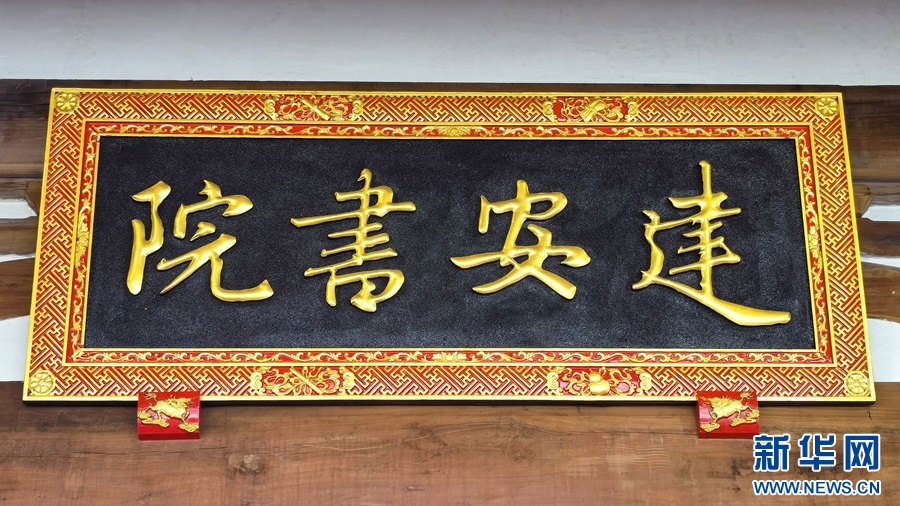 建安書院
新华网
WWW.NEWS.CN